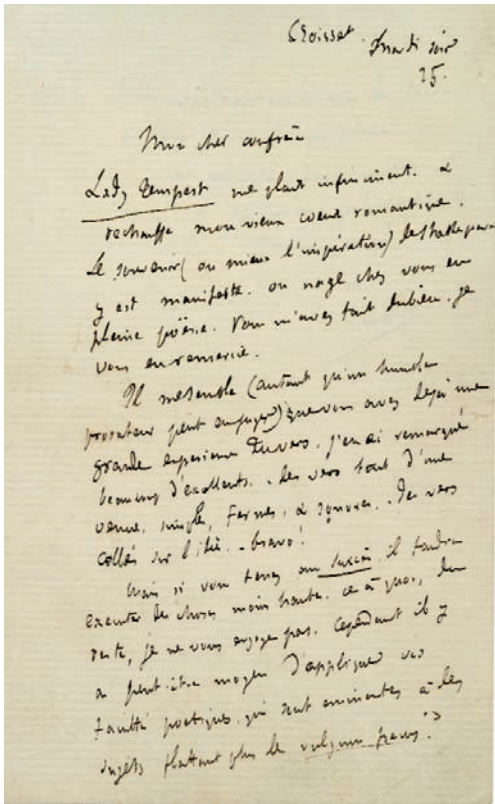 Croisset. mardi soir
25.
Mon cher confrère
Lady Tempest me plait infiniment. &
rechauffe mon vieux coeur romantique.
Le souvenir (ou mieux l'inspiration) de Shakespeare
y est manifeste. on nage chez vous en
pleine poësie. Vous m'avez fait du bien. je
vous en remercie.
Il me semble (autant qu'un humble
prosateur peut en juger) que vous avez dejà une
grande experience du vers. j'en ai remarqué
beaucoup d'excellents. - des vers tout d'une
venue, simples, fermes, & sonores. - des vers
collés sur l'idée. - bravo!
Mais si vous tenez au succès il faudra
executer des choses moins hautes. ce à quoi, du
reste, je ne vous engage pas. Cependant il y
a peut-être moyen d'appliquer vos
facultés poetiques, qui sont eminentes à des
sujets flattant plus le vulgum pecus?